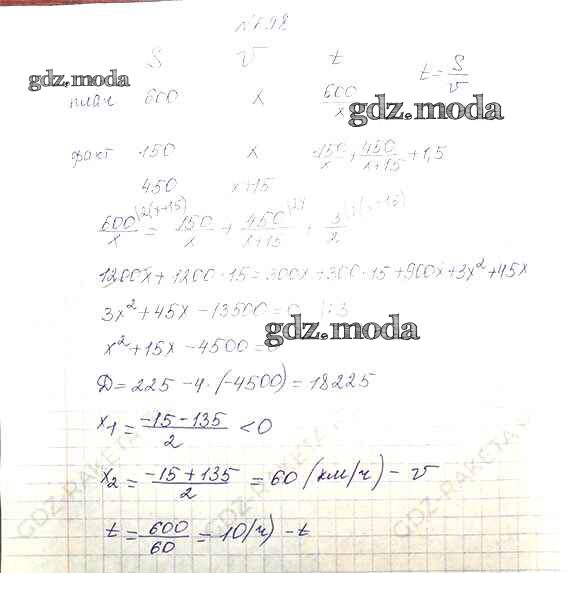 S V t t = S/V
gdz.moda
план 600 x 600/x
gdz.moda
факт 150 x 150/x + 450/(x+15) + 1,5
450 x+15
600/x = 150/x + 450/(x+15) + 3/2
1200x + 1200 · 15 = 300x + 300 · 15 + 900x + 3x² + 45x
3x² + 45x - 13500 = 0 | : 3
gdz.moda
x² + 15x - 4500 = 0
D = 225 - 4 · (-4500) = 18225
x₁ = (-15 - 135)/2 < 0
x₂ = (-15 + 135)/2 = 60 (км/ч) - V
t = 600/60 = 10 (ч) - t
GDZ-RAKETA
GDZ-RAKETA
GDZ-RAKETA